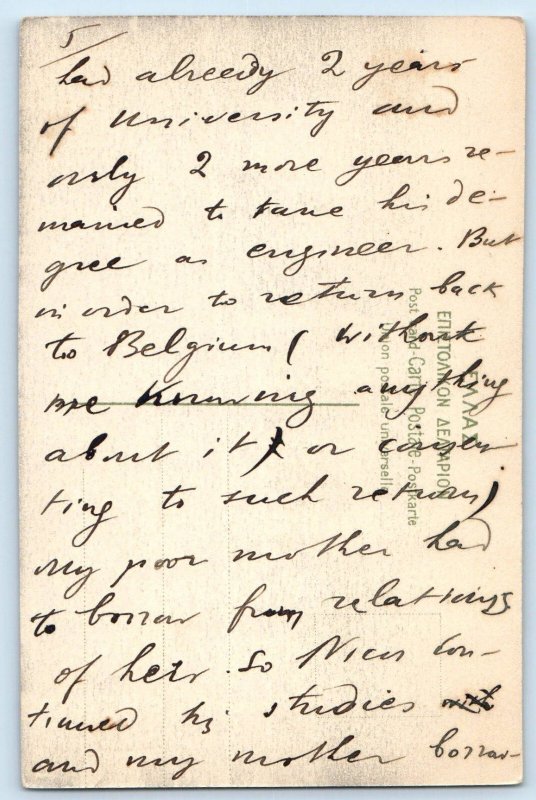 5/
had alreedy 2 years
of University and
only 2 more years re-
mained to take his de-
gree as engineer. But
in order to return back
to Belgium ( without
me Knowing anything
about it) or consen
ting to such return)
my poor mother had
to borrow from relations
of hers. So Nicos con-
tinued his studies with
and my mother borrow-
ΕΛΛΑΣ
ΕΠΙΣΤΟΛΙΚΟΝ ΔΕΛΤΑΡΙΟΝ
Post Card-Carte Postale-Postkarte
Union postale universelle